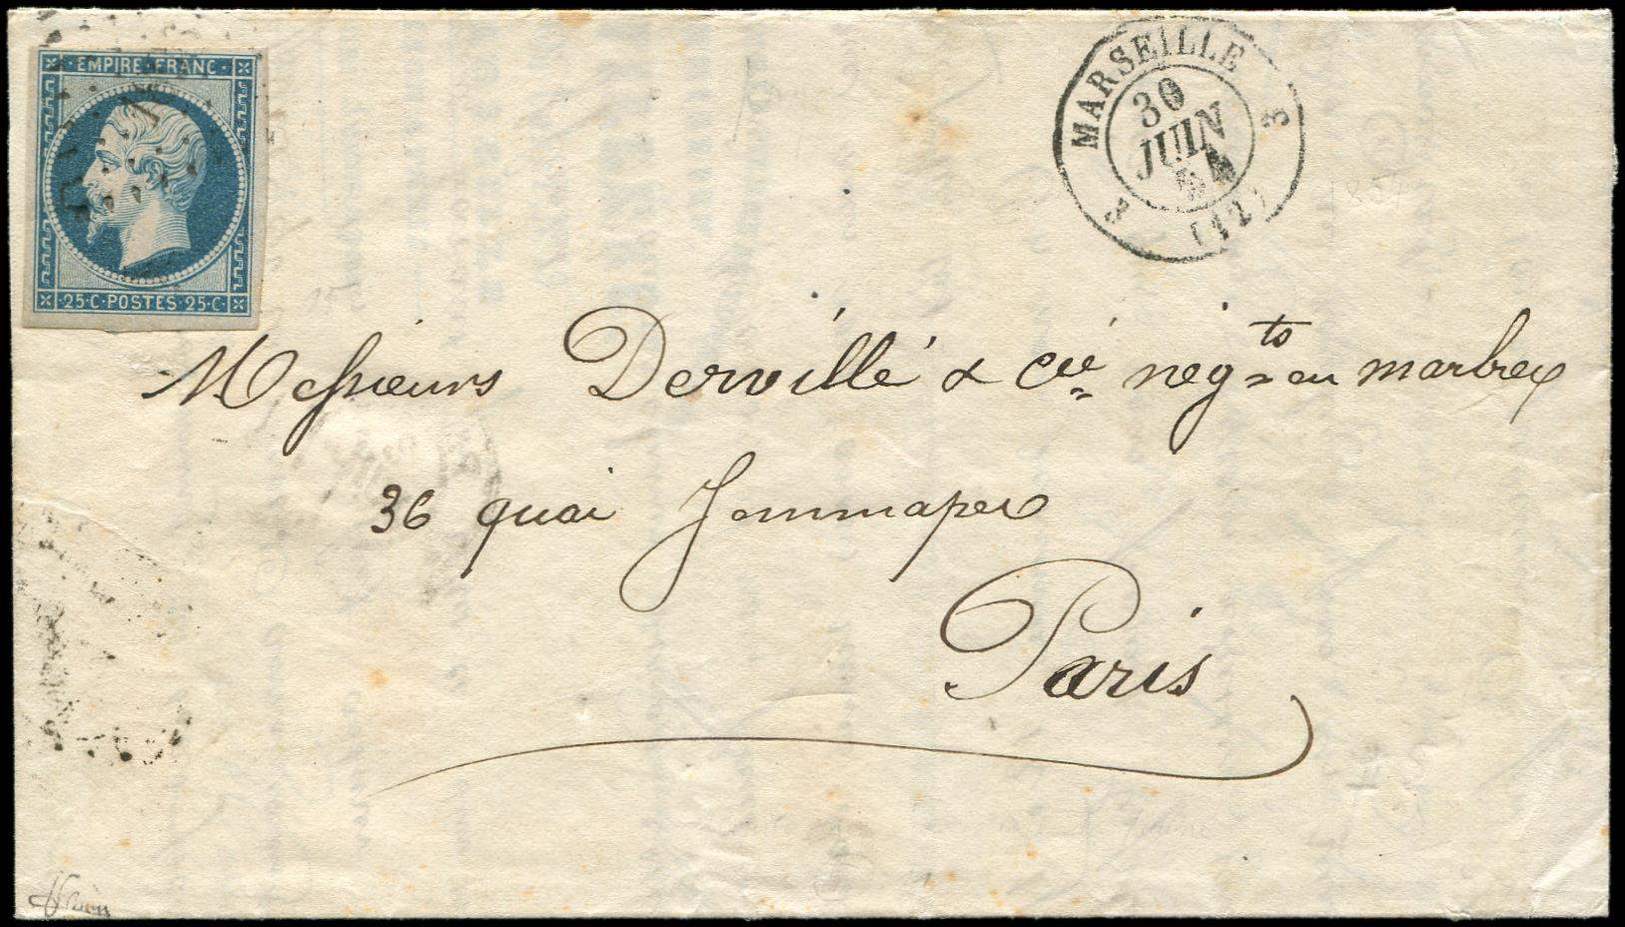 EMPIRE FRANC
25·C·POSTES 25·C·
MARSEILLE
3
30
JUIN
54
(12)
Messieurs Dervillé & Cie negts en marbres
36 quai Jemmapes
Paris